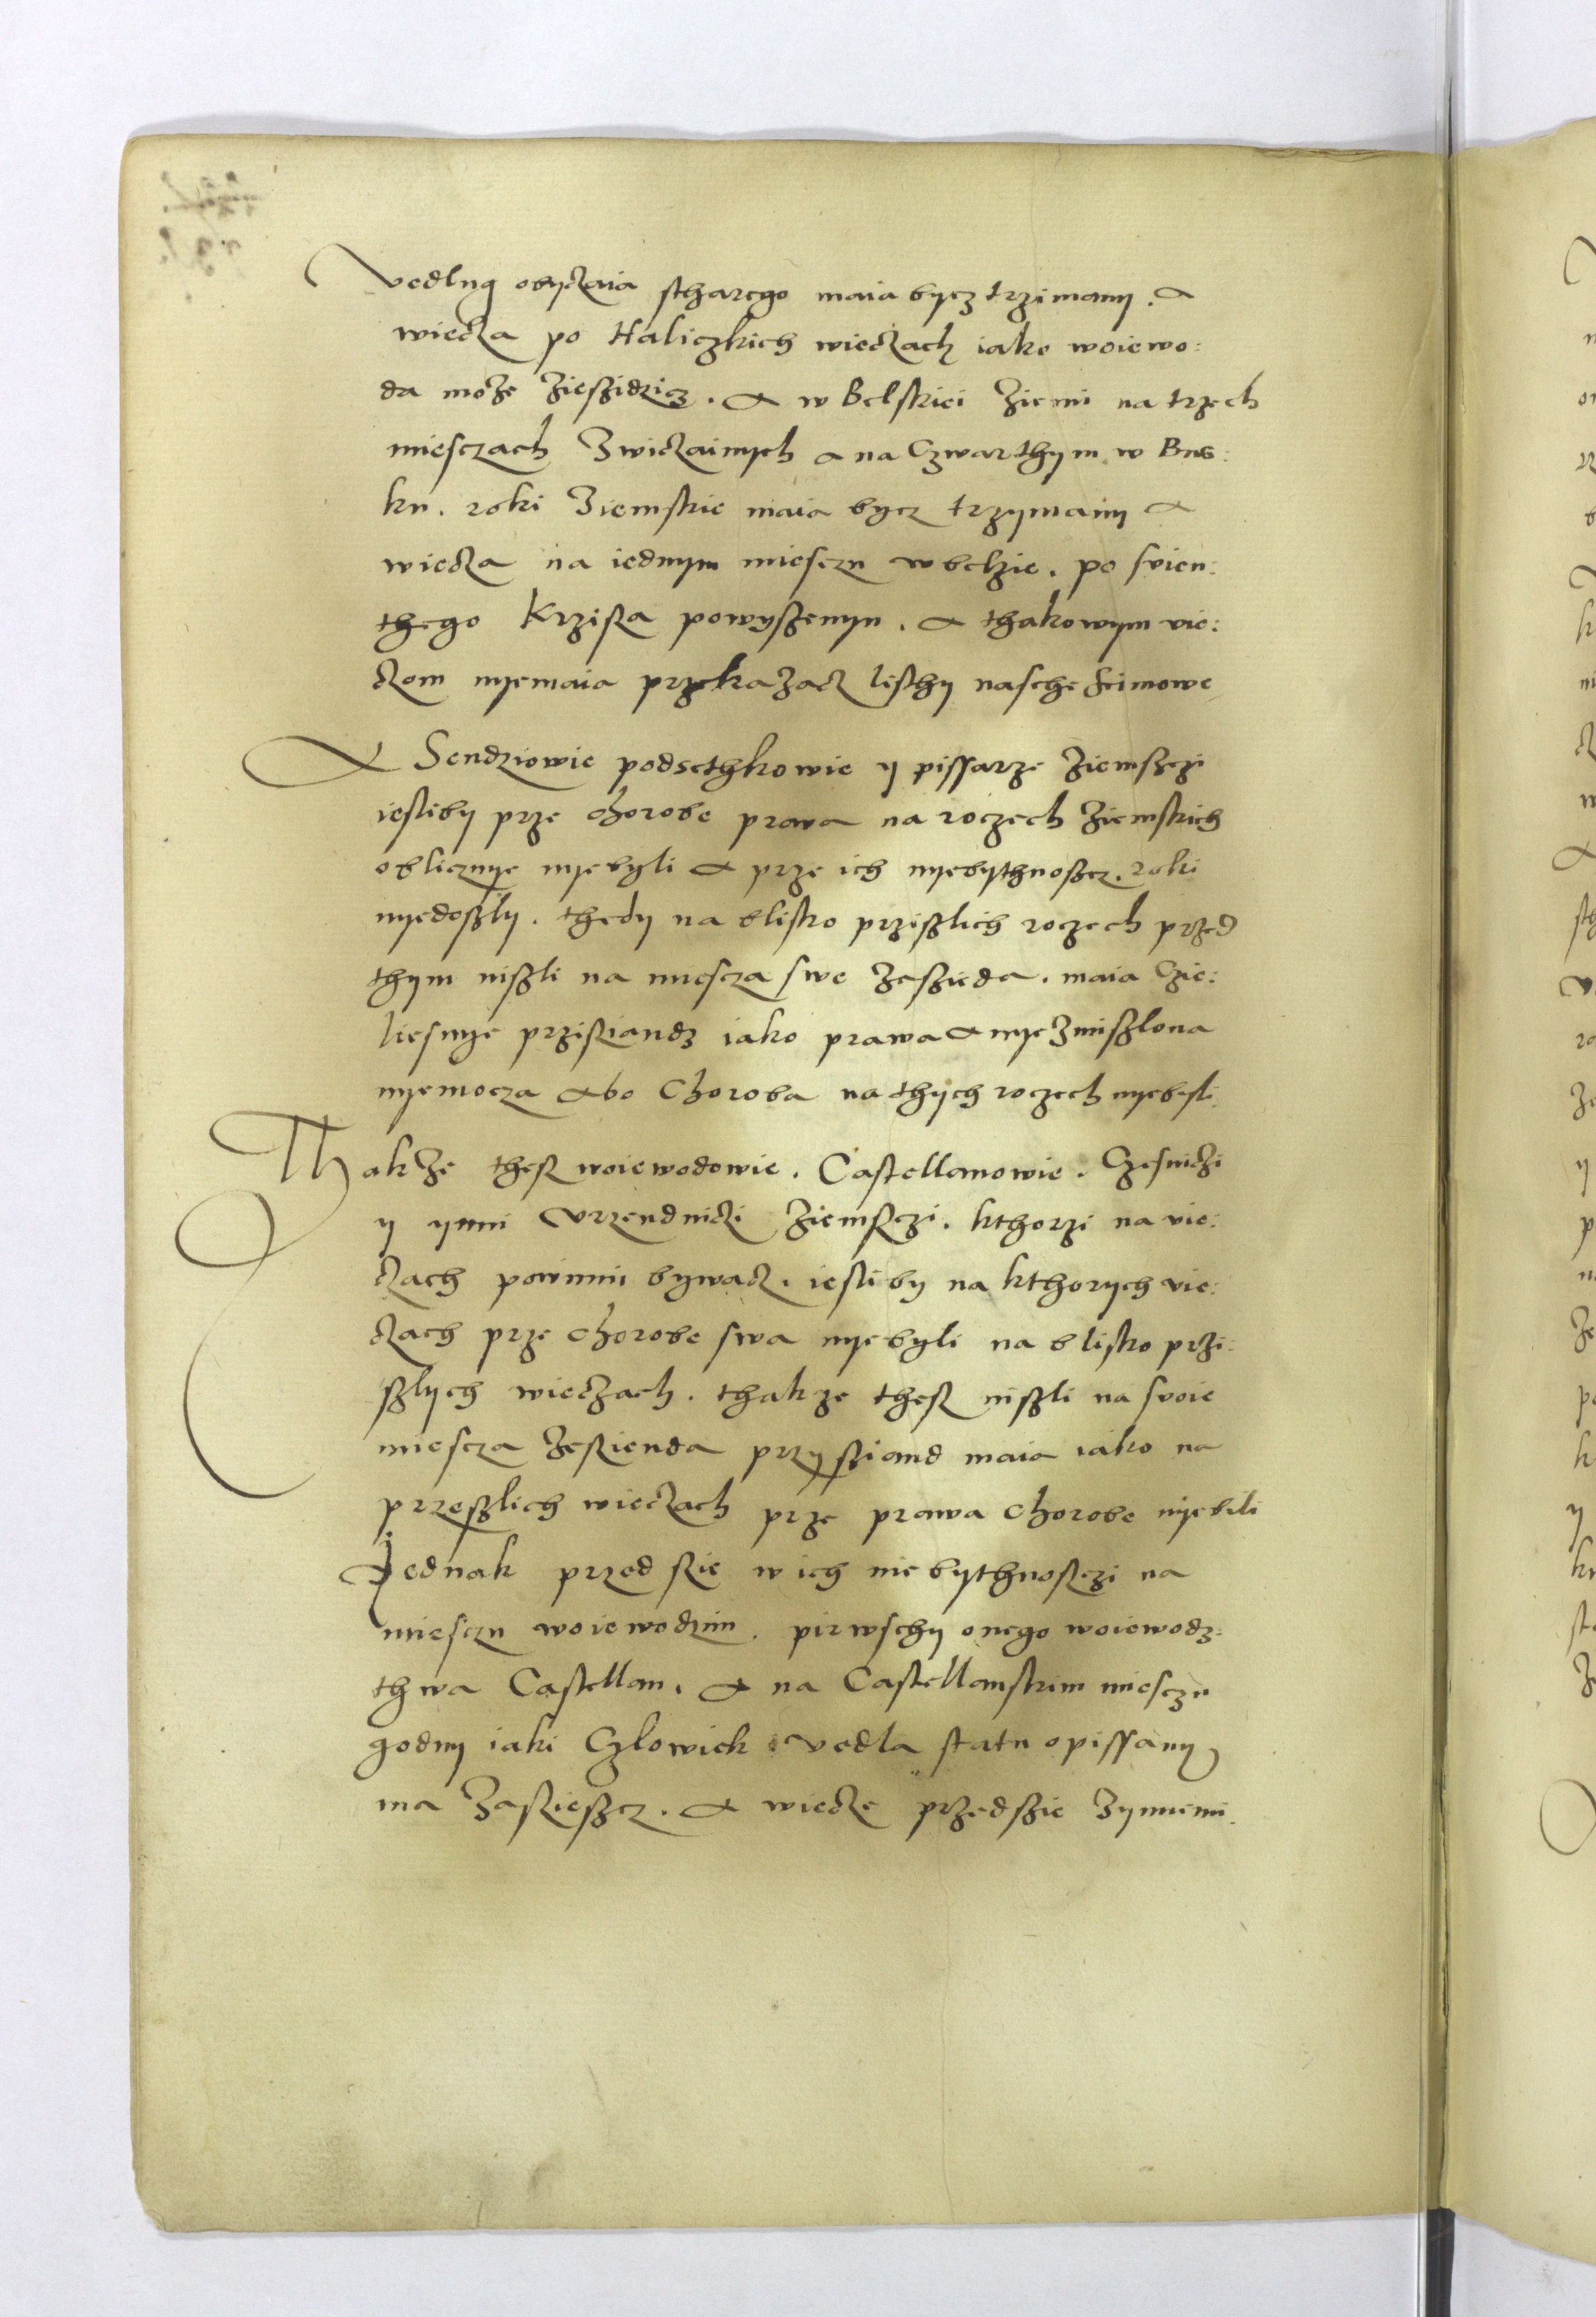 Vedlug obyczaia stharego maia bycz trzimany. A
wiecza po Haliczkich wieczach iako woiewo:
da może zieszidzicz. A w Belskiei ziemi na trzech
miesczach zwiczainych a na czwarthym w Bus:
ku. roki ziemskie maia bycz trzymany A
wiecza na iednym miesczu w belzie. po svien:
thego Krzisza powyszenyu. A thakowym vie:
czom nyemaia przekazacz listhy nasche seimowe
A Sendziowie podsethkowie y pissarze ziemsczi
iesliby prze chorobe prawa na roczech ziemskich
oblicznye nyebyli A prze ich nyebythnoszcz. roki
nyedoszly. thedy na blisko prziszlich roczech przed
thym niszli na miescza swe zaszieda. maia czie:
liesnye przisziandz iako prawa A nyezmiszlona
nyemocza Abo choroba na thych roczech nyebyli.
Thakże thesz woiewodowie. Castellanowie. Czesniczi
y ynni Vrzendniczi ziemsczi. kthorzi na vie:
czach powinni bywacz. iesliby na kthorych vie:
czach prze chorobe swa nyebyli na blisko przi:
szlych wieczach. thakze thesz niszli na svoie
miescza zesienda przysziand maia iako na
przeszlich wieczach prze prawa chorobe nyebili
Jednak przedszie w ich niebythnosczi na
miesczu woiewodzim. pirwschy onego woiewodz:
thwa Castellan. A na Castellanskim miesczu
godny iaki czlowiek vedla statu opissany
ma zasziescz. A wiecze przedszie zynnemi.